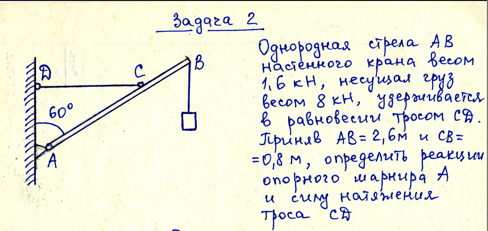 Задача 2
Однородная стрела AB
настенного крана весом
1,6 кН, несущая груз
весом 8 кН, удерживается
в равновесии тросом CD.
Приняв AB=2,6м и CB=
=0,8 м, определить реакции
опорного шарнира A
и силу натяжения
троса CD
D
C
B
60°
A